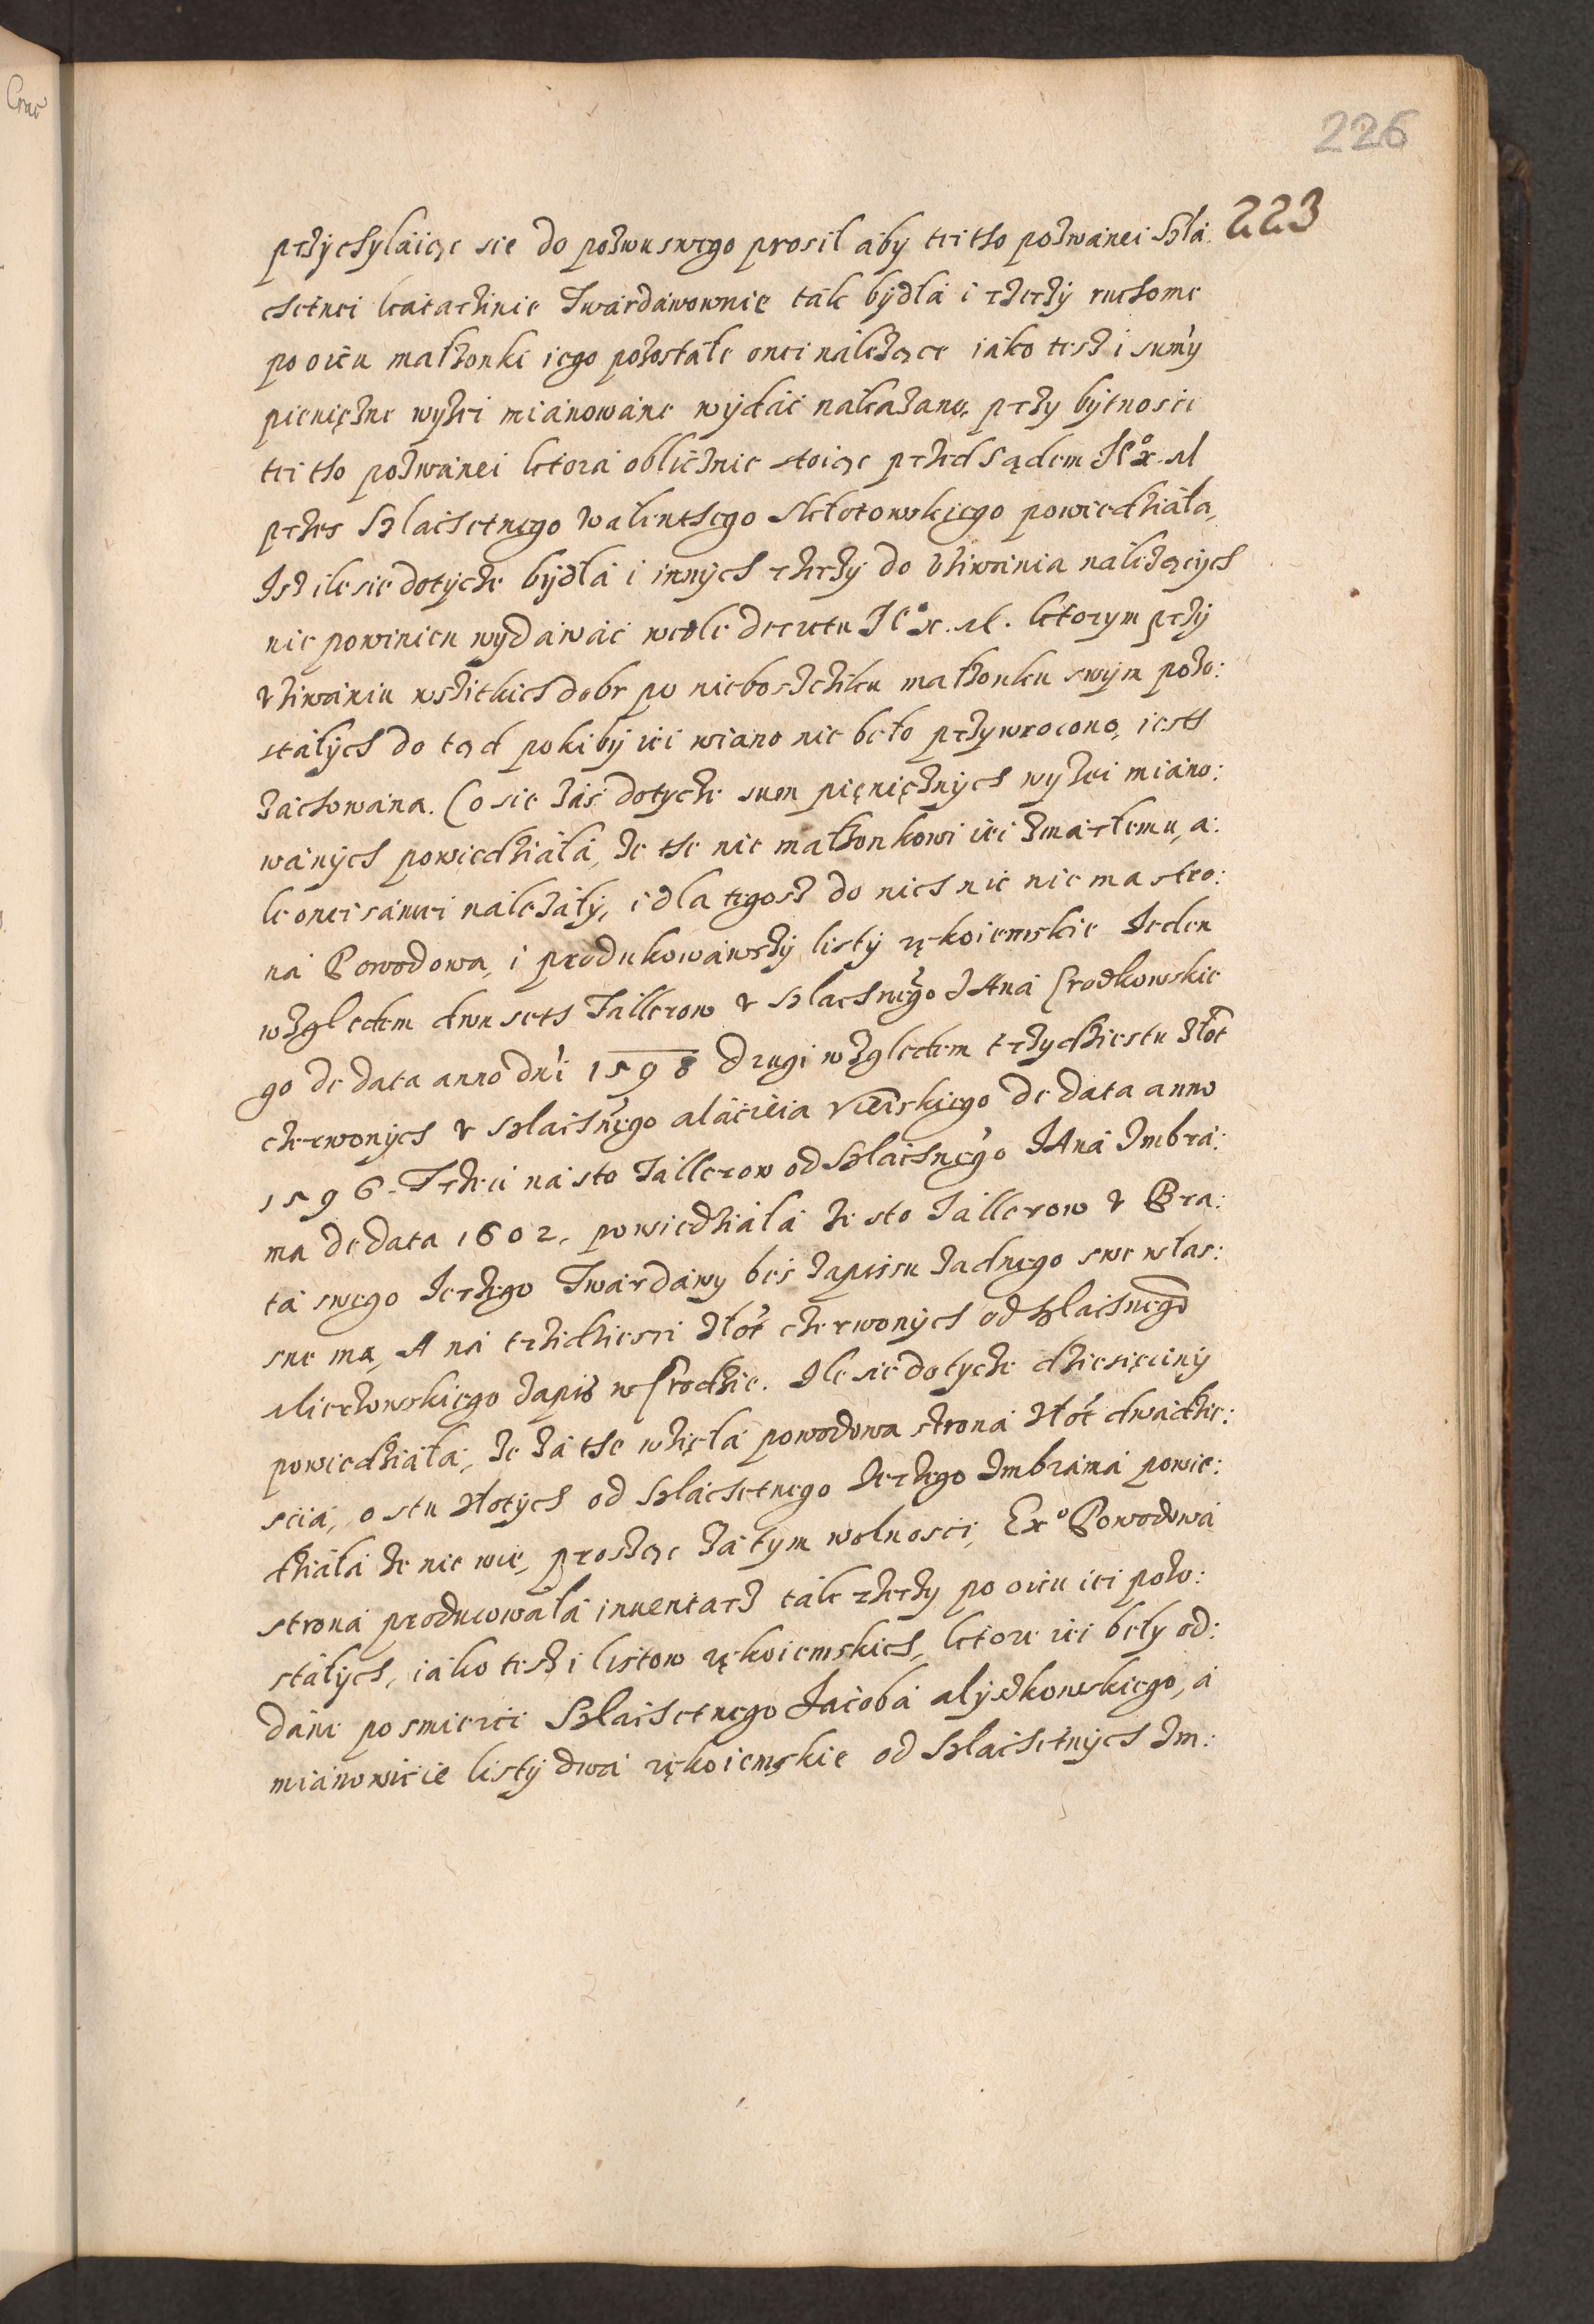 Crac
226
223
przychylaiąc sie do pozwu swego prosil aby tei tho pozwanei szla:
chetnei Katarzinie Twardawownie tak bydla i rzerzy ruchome
po oicu malzonki iego pozostałe onei należące iako tesz i sumy
pienięzne wyzei mianowane wydać nakazano, przy bytnosci
tei tho pozwanei ktora oblicznie stoiąc przed Sądem JKo x. M
przes Szlachetnego Walentego powiedziała,
Isz ile sie dotycze bydła i innych rzerzy do uziwania należących
nie powinien wydawać wedle decretu JKo x. M. ktorym przy
uziwaniu wszitkich dobr po nieboszcziku malzonku swym pozo:
stałych do tąd pokiby iei wiano nie beło przywrocono, iesth
zachowana. Co sie zaś dotycze sum pięnięznych wyzei miano:
wanych powiedziała, ze the nie malzonkowi iei zmarłemu, a:
le onei samei należały, i dla tegosz do nich nic nie ma stro:
na Powodowa, i produkowawszy listy rękoiemskie Jeden
względem dwu seth Tallerow u szlachnego JAna Srodkowskie
go de data anno dni 1598 Drugi względem trzydziestu złot
czerwonych u szlachnego de data anno
1596. Trzeci na sto Tallerow od Szlachnego JAna Imbra:
ma de data 1602. powiedziała ze sto Tallerow u Bra:
ta swego Jerzego Twardawy bes zapissu zadnego swe włas:
sne ma, A na trzidziesci złot czerwonych od szlachnego
Mierzowskiego zapis w Srodzie. Ile sie dotycze dziesięciny
powiedziała, ze za the wzięła powodowa strona złot dwadzie:
scia, o stu złotych od Szlachetnego Jerzego Imbrama powie:
dziala ze nie wie, prosząc zatym wolnosci, Exo Powodowa
strona producowała inuentarz tak rzerzy po oicu iei pozo:
stałych, iako tesz i listow rękoiemskich, ktore iei beły od:
dane po smierci Szlachetnego Jacoba Myszkowskiego, a
mianowicie listy dwa rękoiemskie od szlachetnych Im: